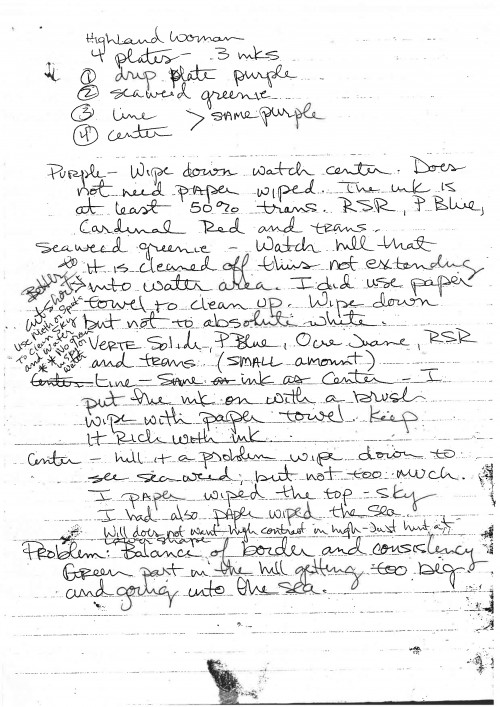 Highland Woman
4 plates - 3 inks
① drip plate purple
② seaweed greenie
③ line
④ center > same purple
Purple - Wipe down watch center. Does
not need paper wiped. The ink is
at least 50% trans. RSR, P Blue,
Cardinal Red and trans.
Seaweed greenie - Watch hill that
it is cleaned off thins not extending
into water area. I did use paper
towel to clean up. Wipe down
but not to absolute white.
Verte Solide, P Blue, Ocre Jaune, RSR
and trans (small amount)
Better to
cut shorter
use cloth or
to clean sky
and water
** No plan
water
Center Line - Same as ink as Center - I
put the ink on with a brush
wipe with paper towel. Keep
it Rich with ink.
Center - hill it a problem wipe down to
see seaweed, but not too much.
I paper wiped the top - sky
I had also paper wiped the sea.
Will does not want high contrast in high - Just hint at
Problem: Balance of border and consistency
Green part in the hill getting too big
and going into the sea.